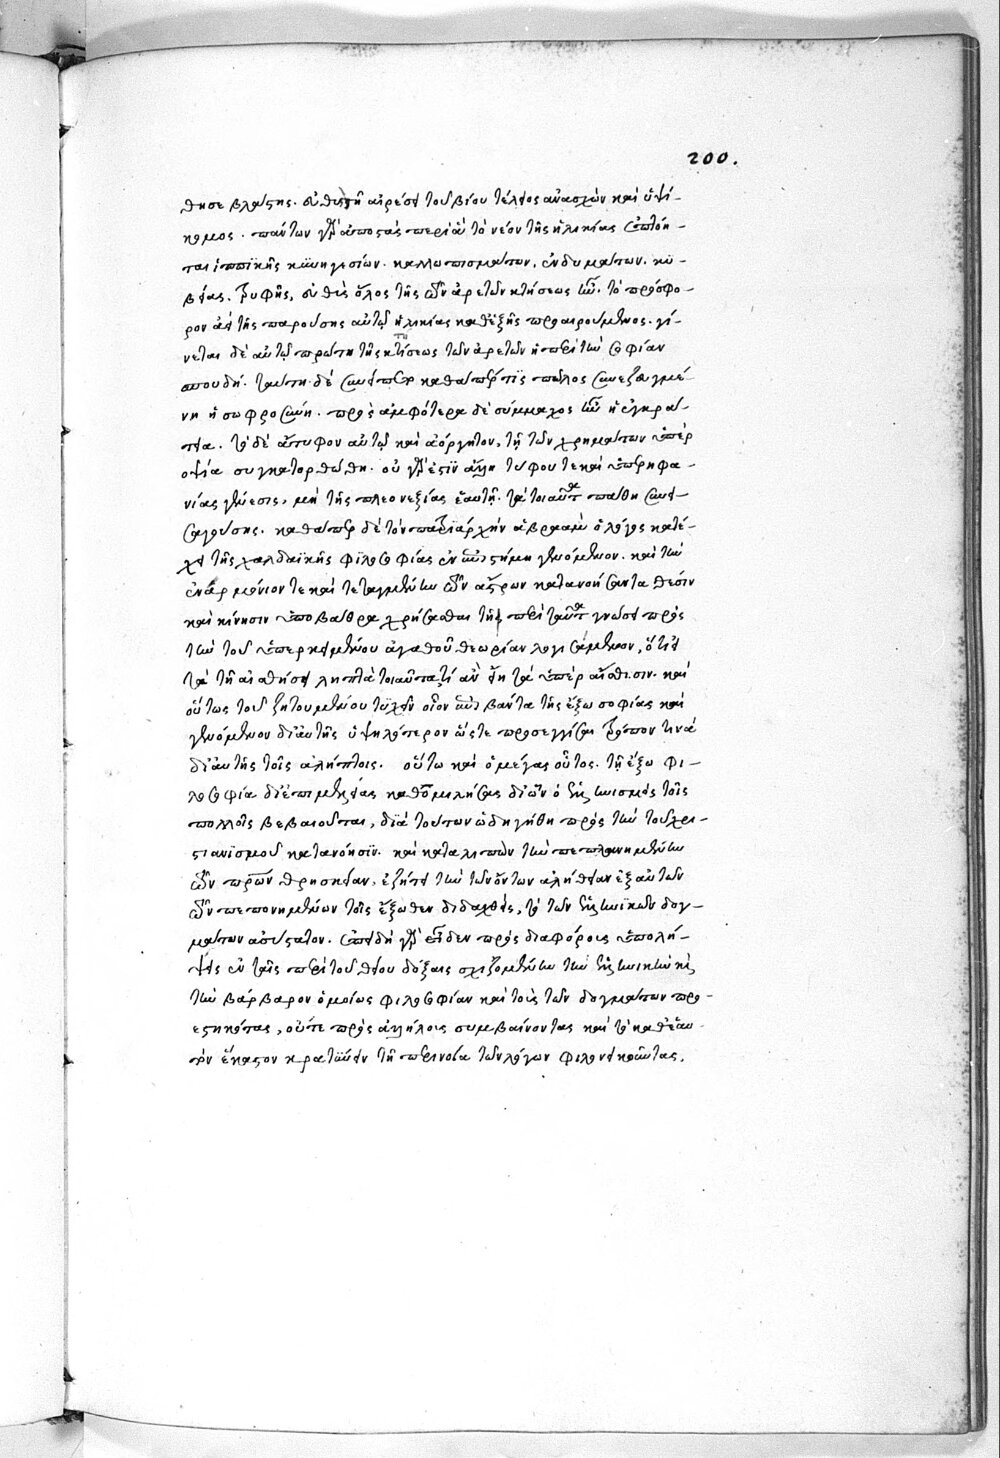 200.
θησε βλάστης. εὐθὺς τῇ αἱρέσει τοῦ βίου τέλειος ἀνασχὼν καὶ ὑψί-
κομος. πάντων γὰρ ἁποστὰς περὶ ἃ τὸ νέον τῆς ἡλικίας ἐπτόη-
ται ἱππϊκῆς κϋνηγεσίων. καλλωπισμάτων, ἐνδυμάτων. κυ-
βείας. τρυφῆς, εὐθὺς ὅλος τῆς τῶν ἀρετῶν κτήσεως ἦν. τὸ πρόσφο-
ρον ἀεὶ τῆς παρούσης αὐτῷ ἡλικίας καθεξῆς προαιρούμενος. γί-
νεται δὲ αὐτῷ πρώτη τῆς κτήσεως τῶν ἀρετῶν ἡ περὶ τὴν σοφίαν
σπουδή. ταύτῃ δὲ καθάπερ τίς πῶλος συνεζευγμέ-
νη ἡ σωφροσύνη. πρὸς ἀμφότερα δὲ σύμμαχος ἦν ἡ ἐγκρά-
τεια. τὸ δὲ ἄτυφον αὐτῷ καὶ ἀόργητον, τῇ τῶν χρημάτων ὑπερ
οψία συγκατορθώθη. οὐ γὰρ ἐστϊν ἄλλη τύφου τε καὶ ὑπερηφα-
νίας γένεσις, μὴ τῆς πλεονεξίας ἑαυτῇ. τὰ τοιαῦτα πάθη συνει-
σαγούσης. καθάπερ δὲ τὸν πατριάρχην ἀβραὰμ ὁ λόγος κατέ-
χει τῆς χαλδαϊκῆς φϊλοσοφίας ἐν ἐπιστήμῃ γενόμενον. καὶ τὴν
ἐναρμόνιον τε καὶ τεταγμένην τῶν ἄστρων κατανοήσαντα θέσιν
καὶ κίνησιν ὑποβάθρα χρήσασθαι τῇ περὶ ταῦτα γνώσει πρὸς
τὴν τοῦ ὑπερκειμένου ἀγαθοῦ θεωρίαν λογισάμενον, ὅτι εἰ
τὰ τῇ αἰσθήσει ληπτὰ τοιαῦτα τί ἂν εἴη τὰ ὑπὲρ αἴσθησιν. καὶ
οὕτως τοῦ ζητουμένου τυχεῖν οἷον ἐπιβάντα τῆς ἔξω σοφίας καὶ
γενόμενον διαυτῆς ὑψηλότερον ὥστε προσεγγίσαι τρόπον τινὰ
διαυτῆς τοῖς αλήπτοις. οὕτω καὶ ὁ μέγας οὗτος. τῇ ἔξω φι-
λοσοφία δι᾽ ἐπιμελείας καθομιλήσας διῶν ὁ ἑλληνισμὸς τοῖς
πολλοῖς βεβαιοῦται, διὰ τούτων ὡδηγήθη πρὸς τὴν τοῦ χρι-
στιανϊσμοῦ κατανόησϊν. καὶ καταλιπὼν τὴν πεπλανημένην
τῶν πατρώων θρησκείαν, ἐζήτει τὴν τῶν ὄντων ἀλήθειαν ἐξ αὐτῶν
τῶν πεπονημένων τοῖς ἔξωθεν διδαχθεὶς, τὸ τῶν ἑλληνικῶν δογ-
μάτων ἀσύστατον. ἐπειδὴ γὰρ εἶδεν πρὸς διαφόρους ὑπολή-
ψεις ἐν ταῖς περὶ τοῦ θείου δόξαις σχιζομένην τὴν ἑλληνικήν κỳ
τὴν βάρβαρον ὁμοίως φιλοσοφίαν καὶ τοὺς τῶν δογμάτων προ-
εστηκότας, οὔτε πρὸς ἀλλήλους συμβαίνοντας καὶ τὸ καθεαυ-
τὸν ἕκαστον κρατύνειν τῇ περινοία τῶν λόγων φιλονεικοῦντας.